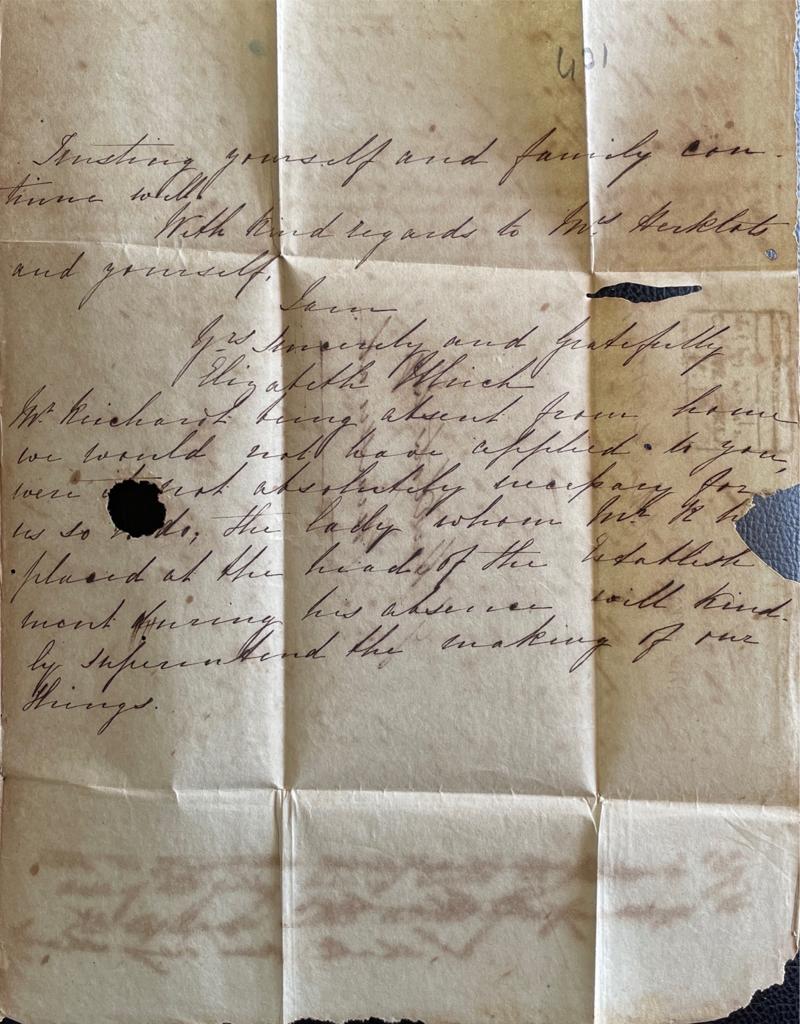 401
Trusting yourself and family con-
tinue well.
With kind regards to Mrs Herklots
and yourself,
I am
Yrs sincerely and gratefully
Elizabeth
Mr Reichardt being absent from home
we would not have applied to you,
were it not absolutely necessary for
us so to do; the lady whom Mr R h
placed at the head of the Establish
ment during his absence will kind-
ly superintend the making of our
things.